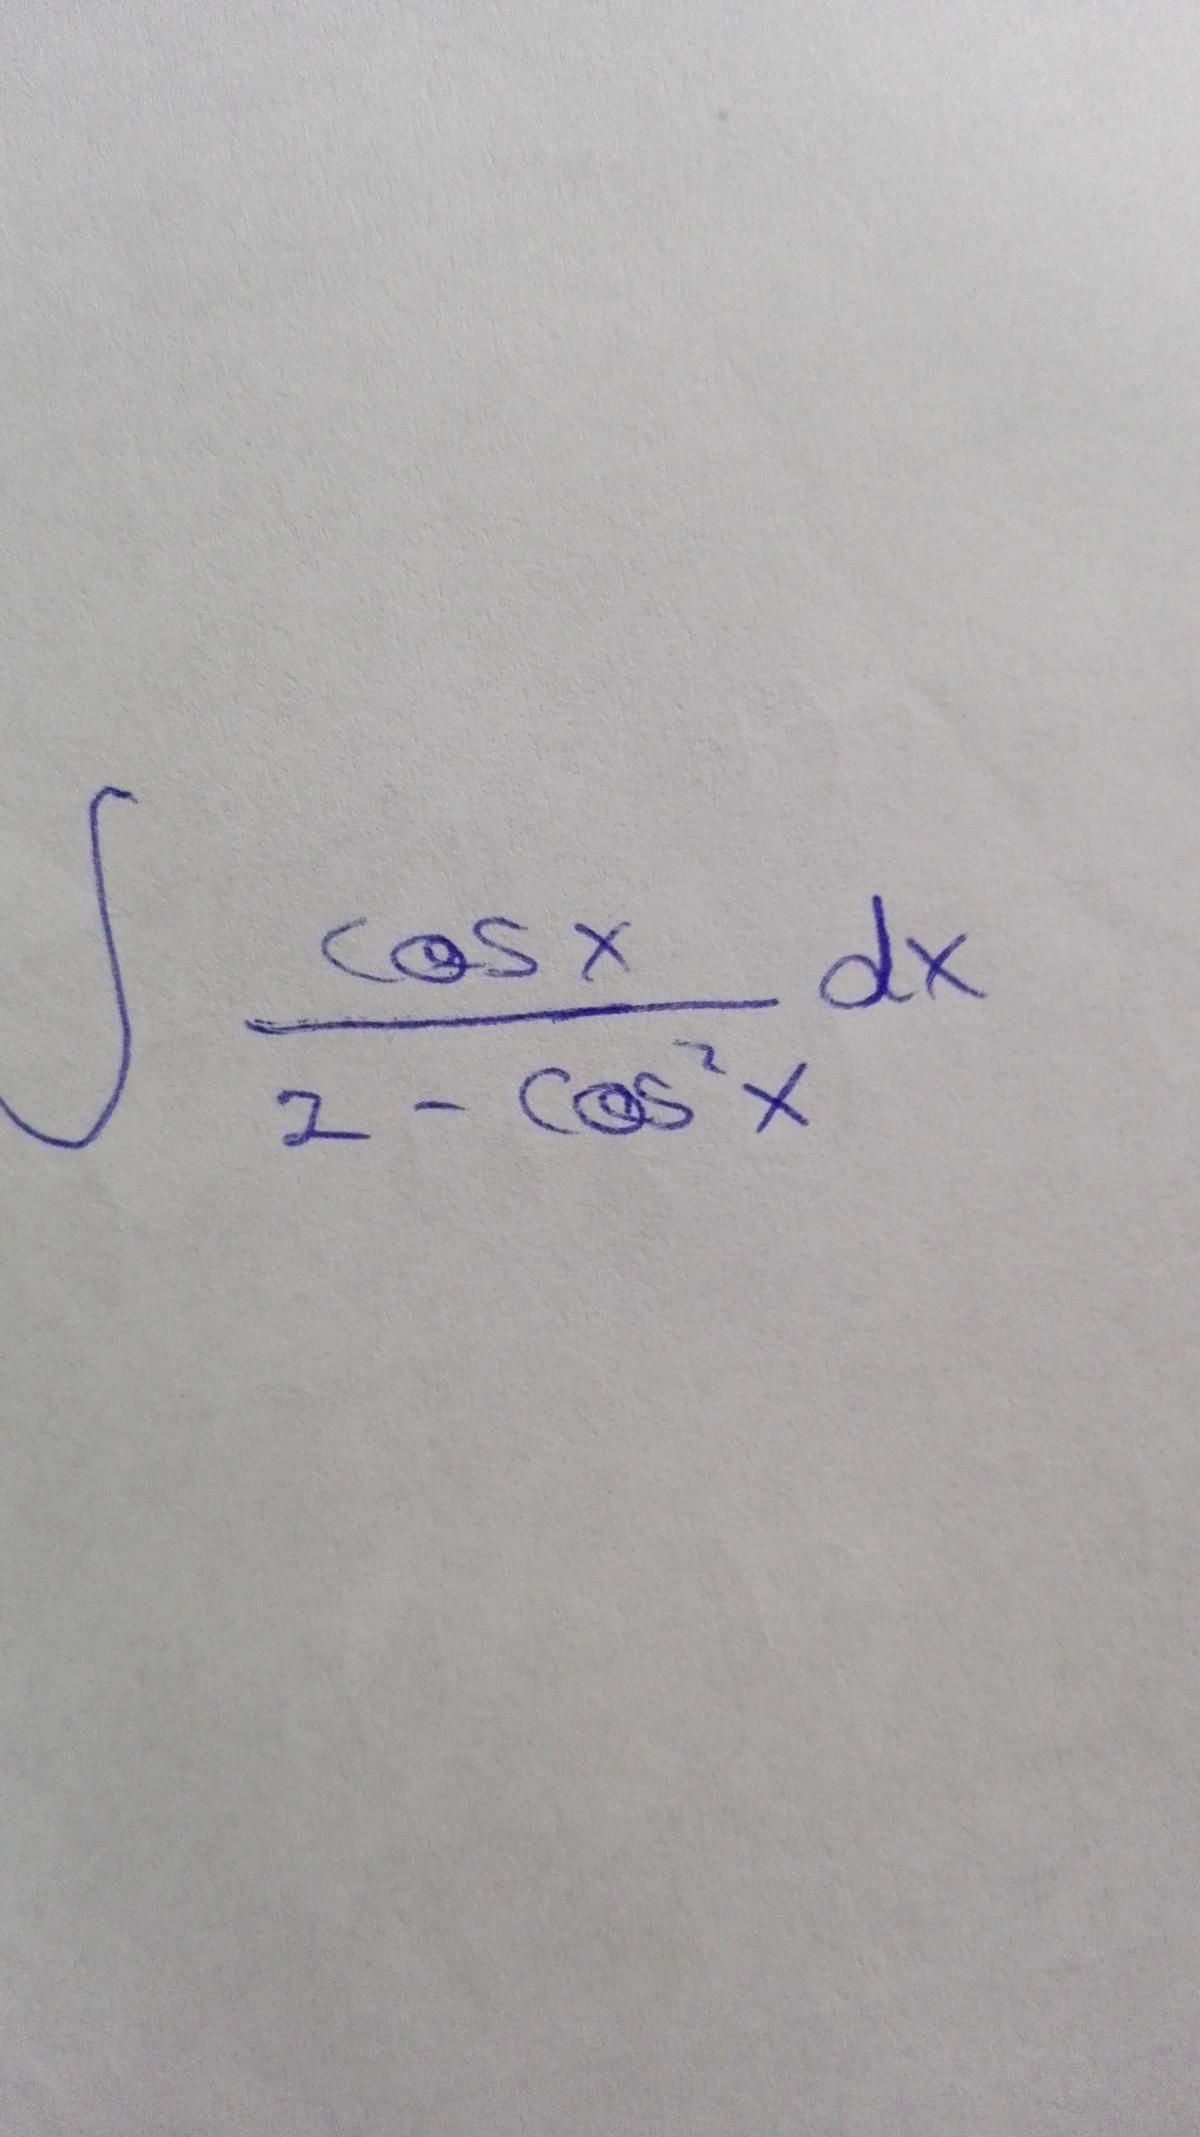 ∫ cos x / (2 - cos² x) dx